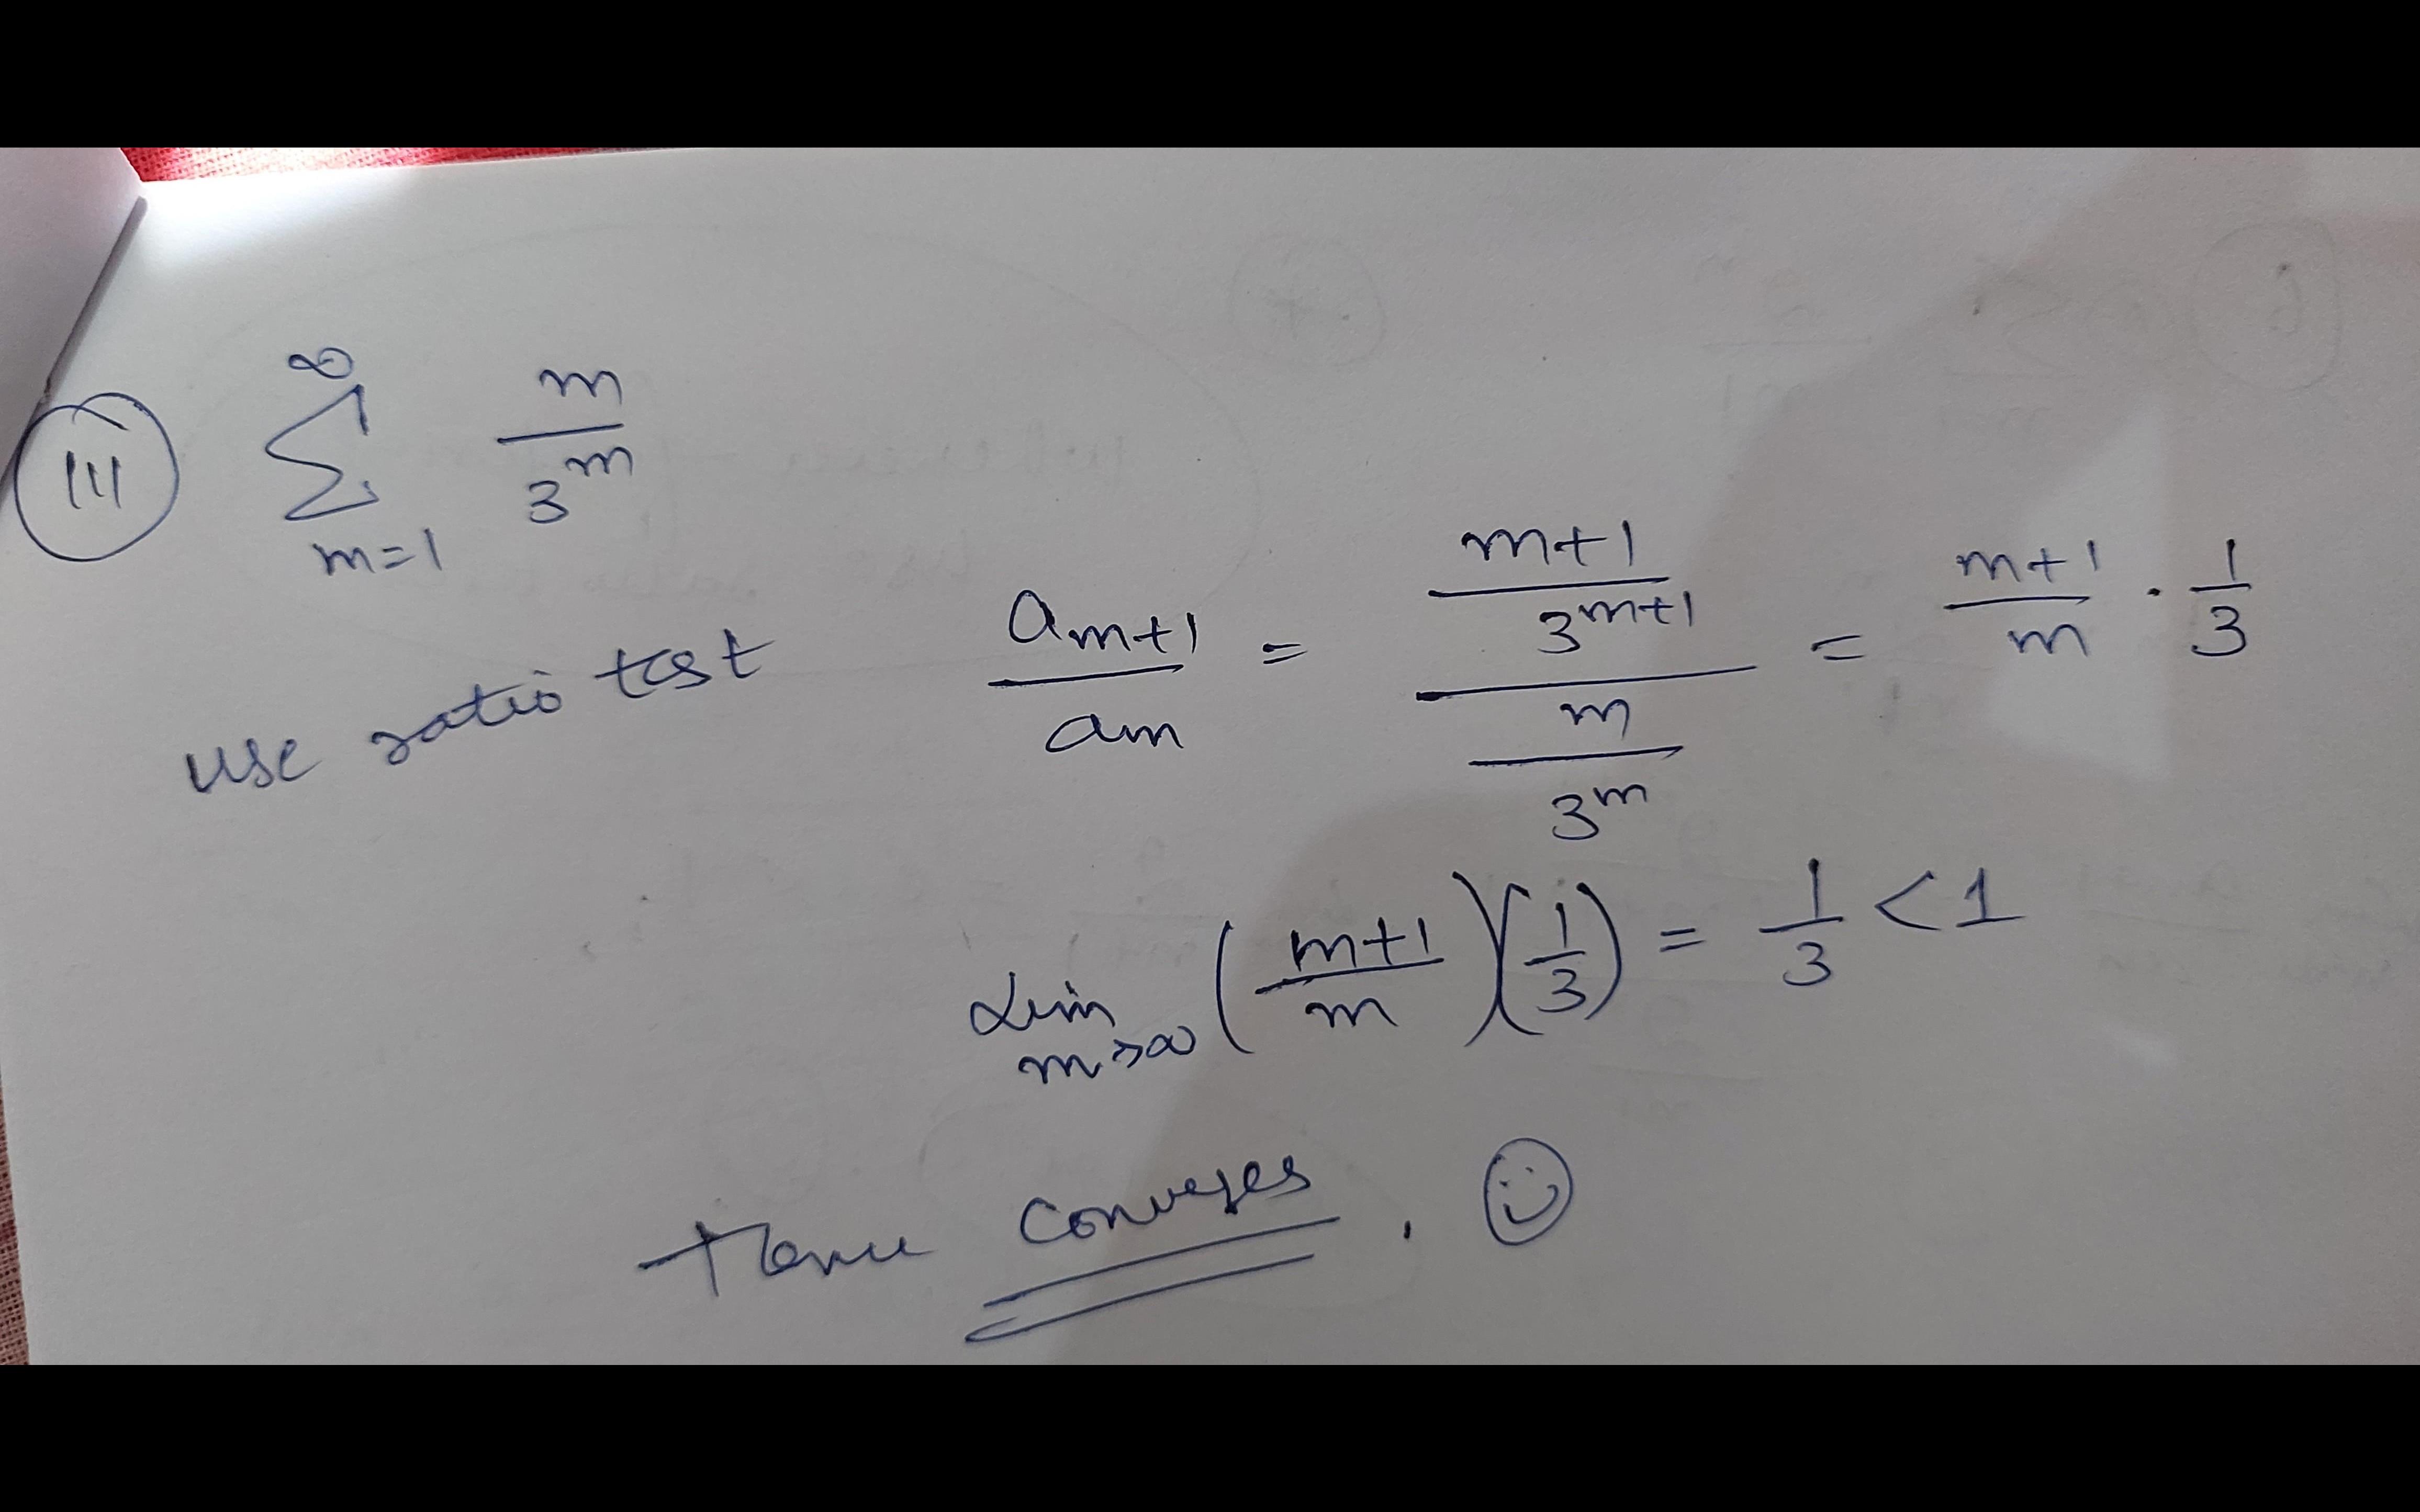 (III) ∑_{m=1}^{∞} m/3^m
use ratio test a_{m+1}/a_m = ((m+1)/3^{m+1})/(m/3^m) = (m+1)/m · 1/3
Lim_{m→∞} ((m+1)/m)(1/3) = 1/3 < 1
Hence converges. ☺